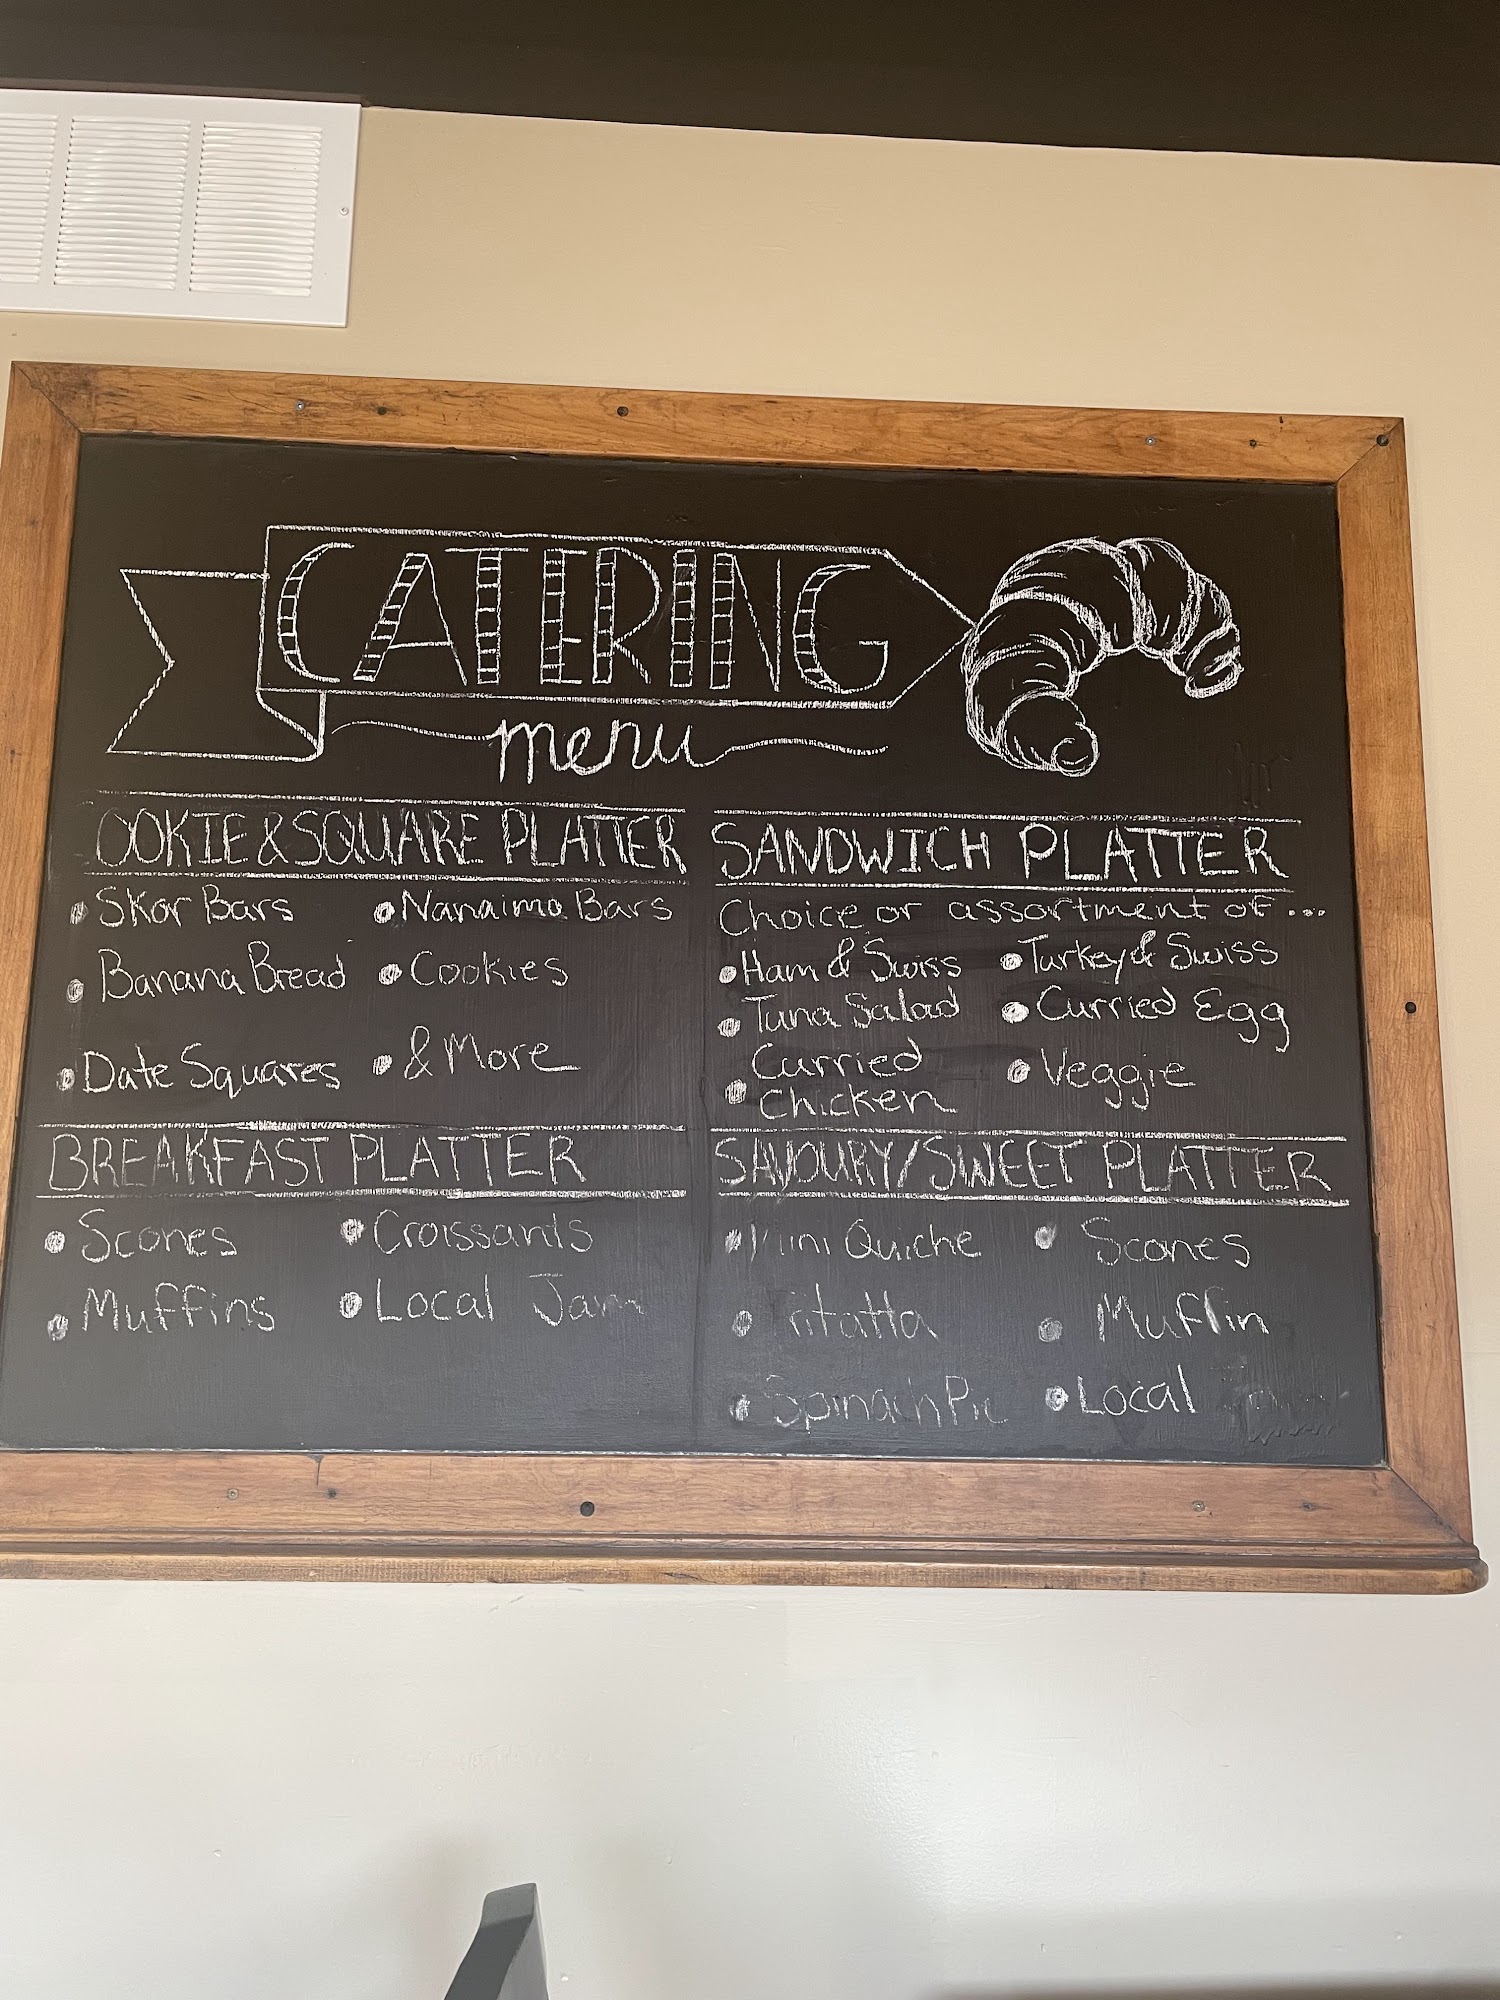 CATERING
menu
OOKIE & SQUARE PLATTER
• Skor Bars • Nanaimo Bars
• Banana Bread • Cookies
• Date Squares • & More
SANDWICH PLATTER
Choice or assortment of...
• Ham & Swiss • Turkey & Swiss
• Tuna Salad • Curried Egg
• Curried • Veggie
Chicken
BREAKFAST PLATTER
• Scones • Croissants
• Muffins • Local Jam
SAVOURY/SWEET PLATTER
• Mini Quiche • Scones
• ritatta • Muffin
• Spinach Pie • Local